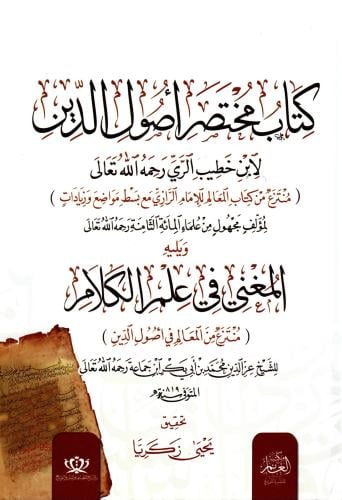 كِتَابُ مُخْتَصَر أُصُولِ الدِّينِ
لِابْنِ خَطِيبِ الرَّيِّ رَحِمَهُ اللهُ تَعَالَى
( مُنْتَزَعٌ مِنْ كِتَابِ المَعَالِمِ لِلْإِمَامِ الرَّازِيِّ مَعَ بَسْطِ مَوَاضِعَ وَزِيَادَاتٍ )
لِمُؤَلِّفٍ مَجْهُولٍ مِنْ عُلَمَاءِ المِائَةِ الثَّامِنَةِ رَحِمَهُ اللهُ تَعَالَى
وَيَلِيهِ
المُغْنِي فِي عِلْمِ الكَلَامِ
( مُنْتَزَعٌ مِنَ المَعَالِمِ فِي أُصُولِ الدِّينِ )
لِلشَّيْخِ عِزِّ الدِّينِ مُحَمَّدِ بْنِ أَبِي بَكْرٍ ابْنِ جَمَاعَةَ رَحِمَهُ اللهُ تَعَالَى
المتوفى سنة ٨١٩هـ
تحقيق
يحيى زكريا